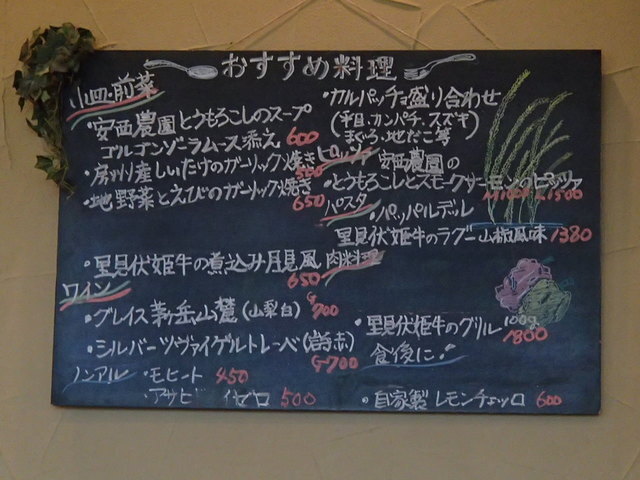 おすすめ料理
小皿・前菜
・安西農園とうもろこしのスープ
ゴルゴンゾーラムース添え 600
・房州産しいたけのガーリック焼き 500
・地野菜とえびのガーリック焼き 650
・里見伏姫牛の煮込み月見風 650
ワイン
・グレイス茅ヶ岳山麓(山梨白) G700
・シルバーツヴァイゲルトレーベ(岩手赤) G700
ノンアル ・モヒート 450
・アサヒ ゼロ 500
・カルパッチョ盛り合わせ
(平目・カンパチ・スズキ
まぐろ・地だこ等)
ピッツァ 安西農園の
・とうもろこしとスモークサーモンのピッツァ
M1000 L1500
パスタ ・パッパルデッレ
里見伏姫牛のラグー山椒風味 1380
肉料理
・里見伏姫牛のグリル 100g 1800
食後に!
・自家製レモンチェッロ 600